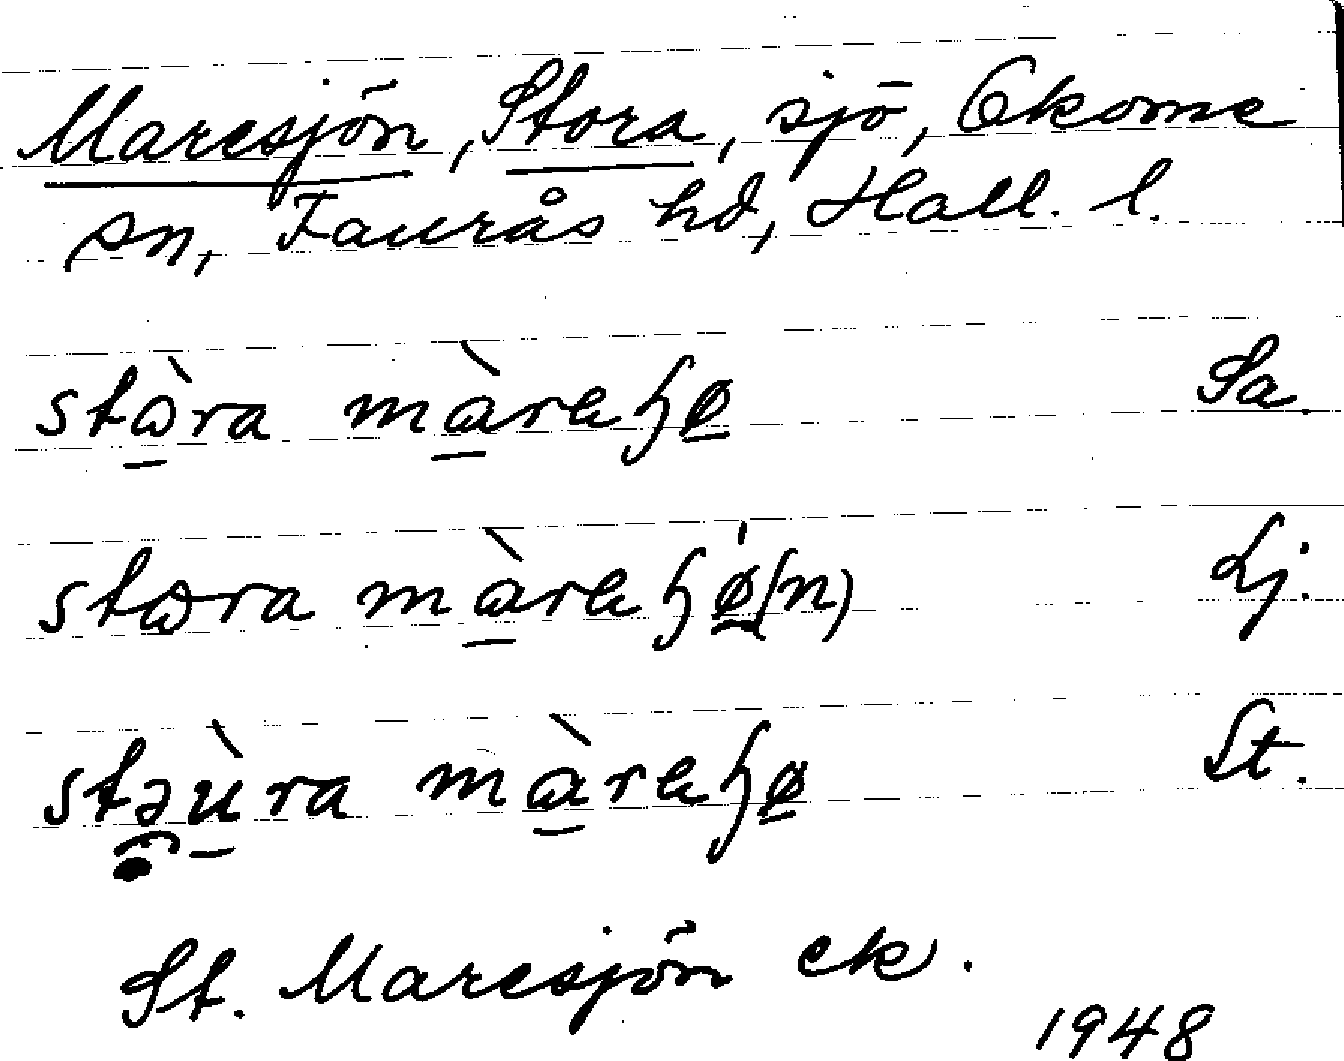 Maresjön, Stora, sjö, Okome
sn, Faurås hd, Hall. l.
stɷ̀ra màreɧø Sa.
stɷra màreɧø(n) Lj.
stəùra màreɧø St.
St. Maresjön ek.
1948